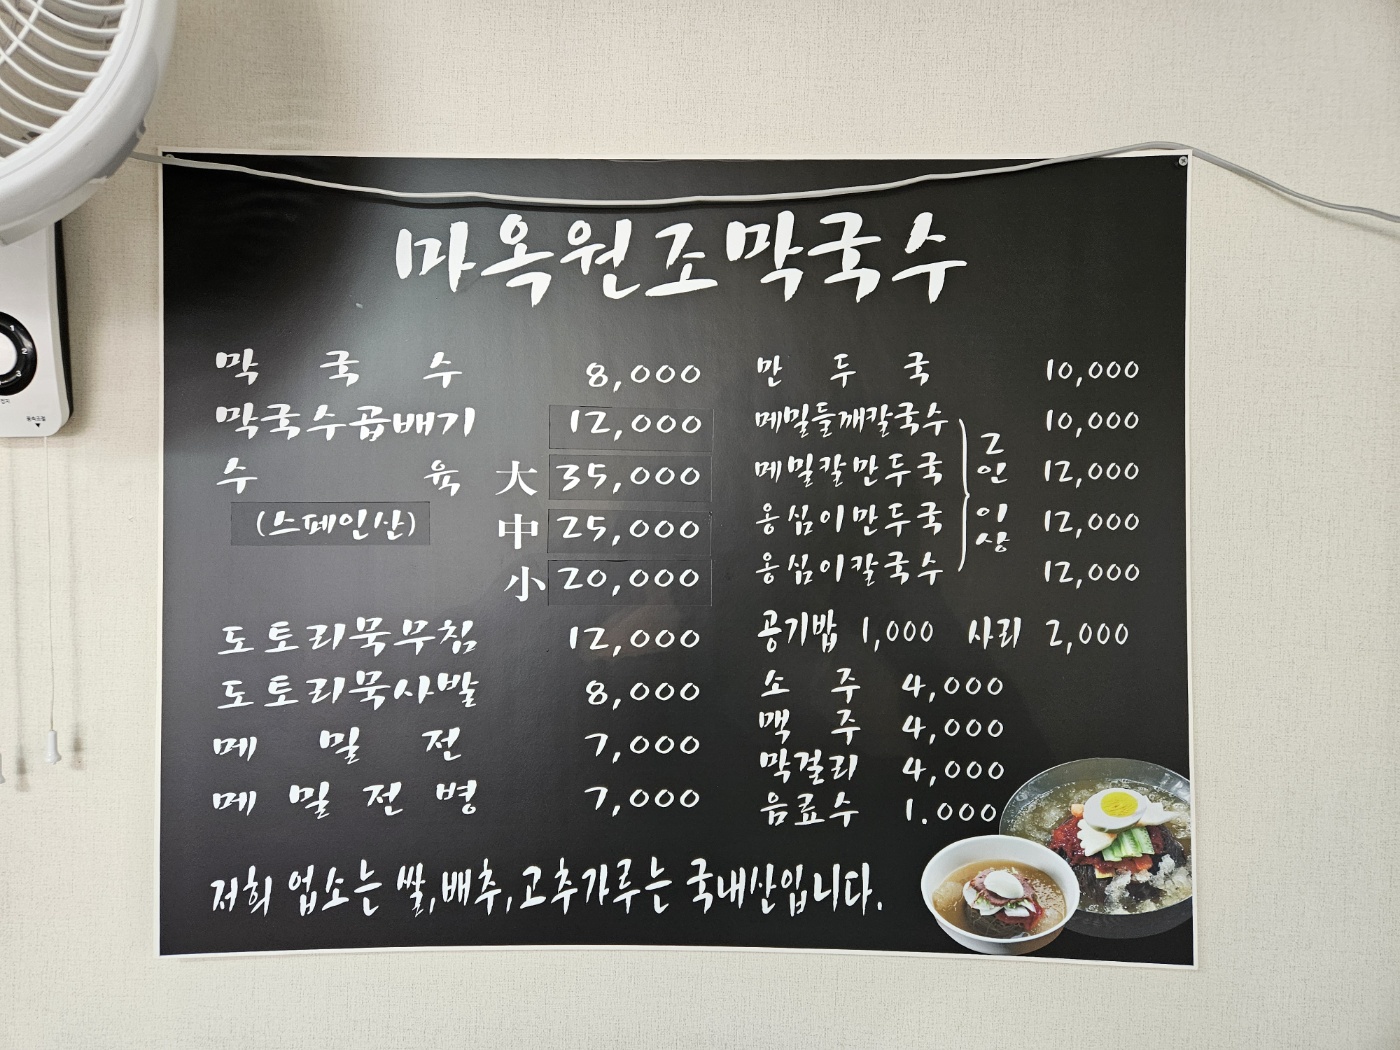 마옥원조막국수
막국수 8,000
막국수곱배기 12,000
수육 大 35,000
(스페인산) 中 25,000
小 20,000
도토리묵무침 12,000
도토리묵사발 8,000
메밀전 7,000
메밀전병 7,000
만두국 10,000
메밀들깨칼국수 10,000
메밀칼만두국 12,000
옹심이만두국 12,000
옹심이칼국수 12,000
2인이상
공기밥 1,000 사리 2,000
소주 4,000
맥주 4,000
막걸리 4,000
음료수 1.000
저희 업소는 쌀,배추,고추가루는 국내산입니다.